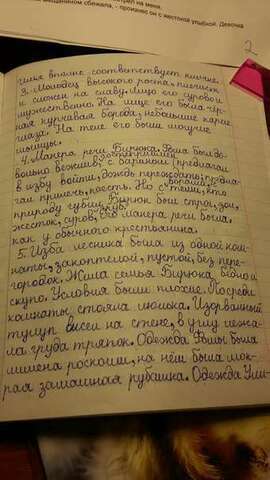 трел на меня.
ещанином сбежала, – произнес он с жестокой улыбкой. Девочка
2
гилье вполне соответствует кличке.
3. Молодец высокого роста, плечист
и сложен на славу. Лицо его сурово и
мужественно. На лице его была чёр-
ная курчавая борода, небольшие карие
глаза. На теле его были могучие
мышцы.
4. Манера речи Бирюка. Фома был до-
вольно вежлив с барином (предлагал
в избу войти, дождь переждать; предла-
гал прилечь, поесть. Но с теми, кто
природу губил, Бирюк был строг, зол,
жесток, суров, его манера речи была,
как у обычного крестьянина.
5. Изба лесника была из одной ком-
наты, закоптелой, пустой, без пере-
городок. Жила семья Бирюка бедно и
скупо. Условия были плохие. Посреди
комнаты стояла люлька. Изорванный
тулуп висел на стене, в углу лежа-
ла груда тряпок. Одежда Фомы была
лишена роскоши, на нём была мок-
рая замашная рубашка. Одежда Ули-